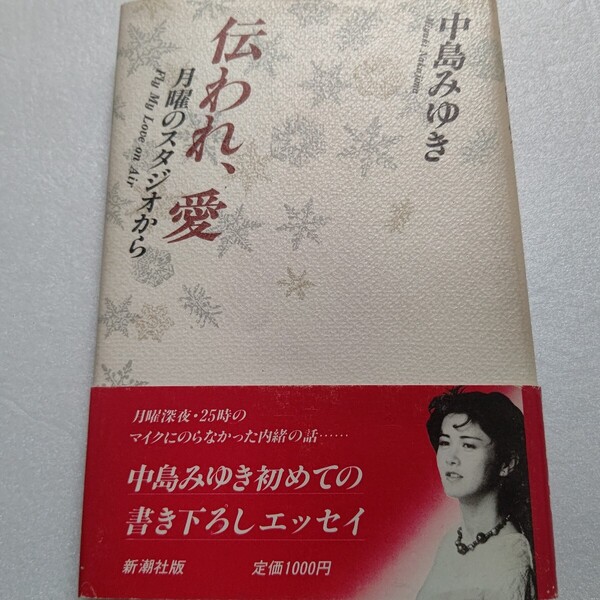 中島みゆき
Miyuki Nakajima
伝われ、愛
月曜のスタジオから
Fly My Love on Air
月曜深夜・25時の
マイクにのらなかった内緒の話……
中島みゆき初めての
書き下ろしエッセイ
新潮社版 定価1000円